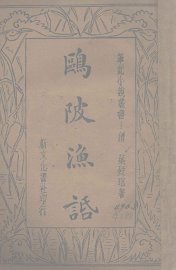 筆記小說叢書 清 葉廷琯著
鷗陂漁話
新文化書社印行